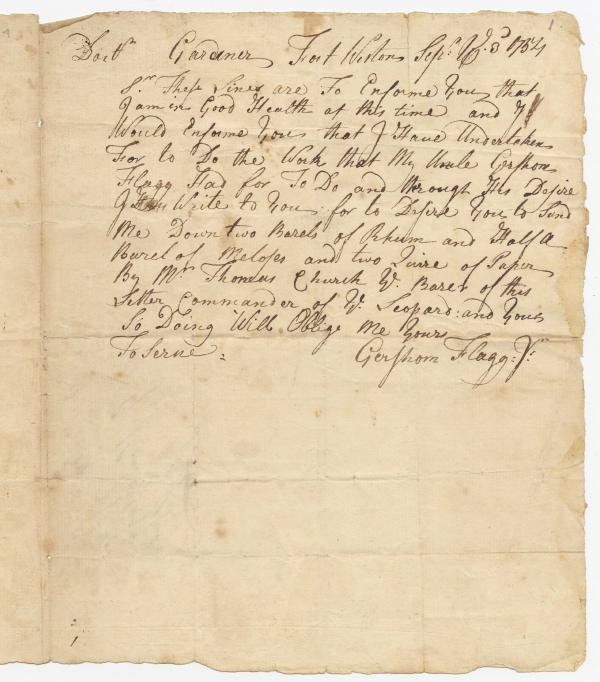 Doctr Gardiner Fort Weston Sepr ye 3d 1754
Sr These Lines are To Enforme You that
I am in Good Health at this time and I
Would Enforme You that I Have Undertaken
For to Do the Work that My Uncle Gershom
Flagg Had for To Do and through His Desire
I Write to You for to Desire You to Send
Me Down two Barels of Rhum and Half a
Barel of Meloses and two Quire of Paper
By Mr Thomas Church ye Barer of this
Letter Commander of ye Leopard: and Your
So Doing Will Oblige Me Yours
To Serve : Gershom Flagg: Jr
1